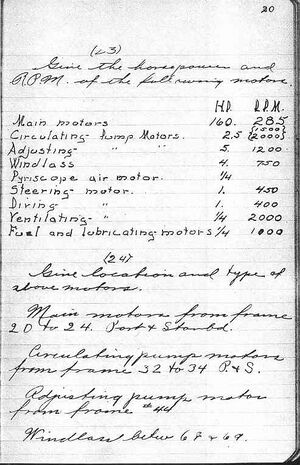 20
(23)
Give the horsepower and
R.P.M. of the following motors.
H.P. R.P.M.
Main motors 160. 285
Circulating Pump Motors. 2.5 {1500 2000}
Adjusting " " 5. 1200
Windlass 4. 750
Pyriscope air motor. 1/4
Steering motor. 1. 450
Diving " 1. 400
Ventilating " 1/4 2000
Fuel and lubricating motors 1/4 1000
(24)
Give location and type of
above motors.
Main motors from frame
20 to 24. Port & Starbd.
Circulating pump motors
from frame 32 to 34 P. & S.
Adjusting pump motor
from frame #44
Windlass below 67 & 69.